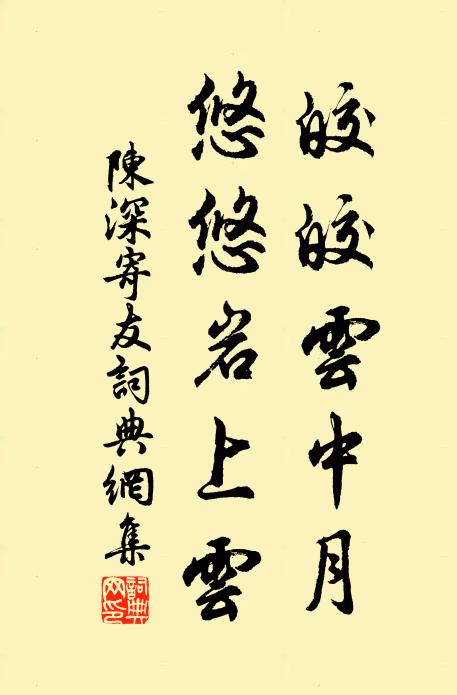 皎皎雲中月
悠悠岩上雲
陳深寄友詞典網集
詞典網印